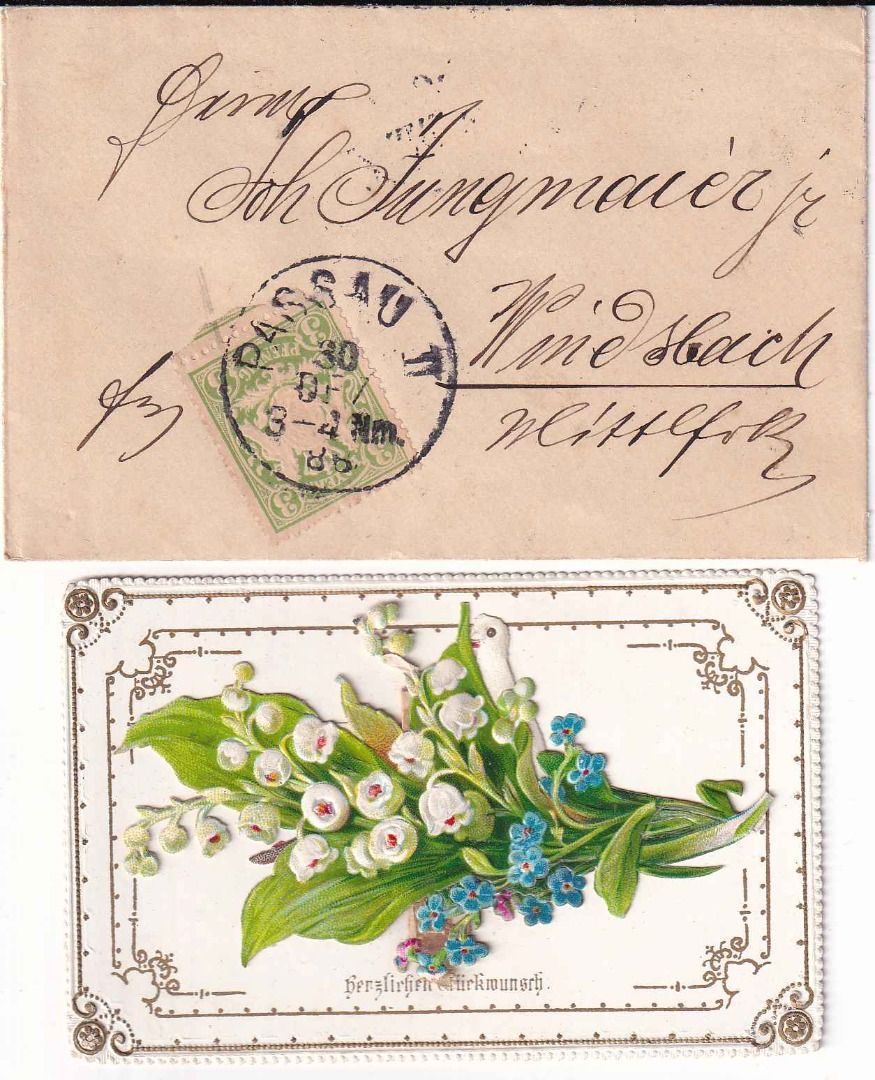 Herrn
Joh Jungmaier jr
Windsbach
Mittlfrk
PASSAU II
30
3-4 Nm.
3
3
3
Herzlichen Glückwunsch.